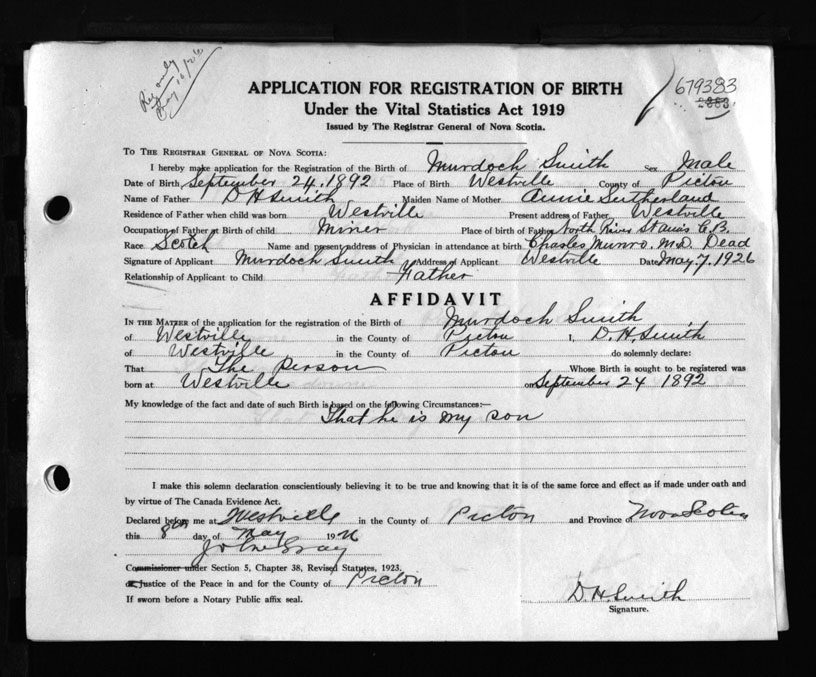 Reg only
May 10/26
679383
APPLICATION FOR REGISTRATION OF BIRTH
Under the Vital Statistics Act 1919
Issued by The Registrar General of Nova Scotia.
To The Registrar General of Nova Scotia:
I hereby make application for the Registration of the Birth of Murdoch Smith Sex Male
Date of Birth September 24. 1892 Place of Birth Westville County of Pictou
Name of Father D H Smith Maiden Name of Mother Annie Sutherland
Residence of Father when child was born Westville Present address of Father Westville
Occupation of Father at Birth of child Miner Place of birth of Father North River St Anns C.B.
Race Scotch Name and present address of Physician in attendance at birth Charles Munro. M.D. Dead
Signature of Applicant Murdoch Smith Address of Applicant Westville Date May. 7. 1926
Relationship of Applicant to Child Father
AFFIDAVIT
In the Matter of the application for the registration of the Birth of Murdoch Smith
of Westville in the County of Pictou I, D. H. Smith
of Westville in the County of Pictou do solemnly declare:
That The Person Whose Birth is sought to be registered was
born at Westville on September 24 1892
My knowledge of the fact and date of such Birth is based on the following Circumstances:—
That he is my son
I make this solemn declaration conscientiously believing it to be true and knowing that it is of the same force and effect as if made under oath and
by virtue of The Canada Evidence Act.
Declared before me at Westville in the County of Pictou and Province of Nova Scotia
this 8th day of May 1926
John Gray
Commissioner under Section 5, Chapter 38, Revised Statutes, 1923.
or Justice of the Peace in and for the County of Pictou
If sworn before a Notary Public affix seal.
D. H. Smith
Signature.